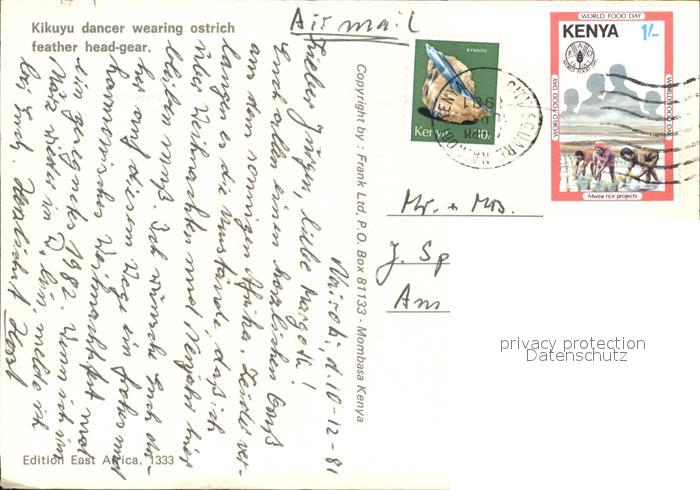 Kikuyu dancer wearing ostrich
feather head-gear.
Air mail
KYANITE
Kenya 10c
WORLD FOOD DAY
KENYA 1/-
WORLD FOOD DAY
WORLD FOOD DAY
WORLD FOOD DAY
Mwea rice projects
CITY SQUARE NAIROBI KENYA
1981
Mr. + Mrs.
J. Sp
Am
privacy protection
Datenschutz
Copyright by : Frank Ltd, P.O. Box 81133 - Mombasa Kenya
Nairobi, d. 10-12-81
Lieber Jürgen, liebe Margot!
Euch allen einen herzlichen Gruß
aus dem sonnigen Afrika. Leider ver-
langen die Umstände, daß ich
über Weihnachten und Neujahr hier
bleiben muß. Ich wünsche Euch da-
her auf diesem Wege ein frohes und
harmonisches Weihnachtsfest und
ein gesegnetes 1982. Wenn ich im
März wieder in bin, melde ich
bei Euch. Herzlichst Horst
Edition East Africa, 1333